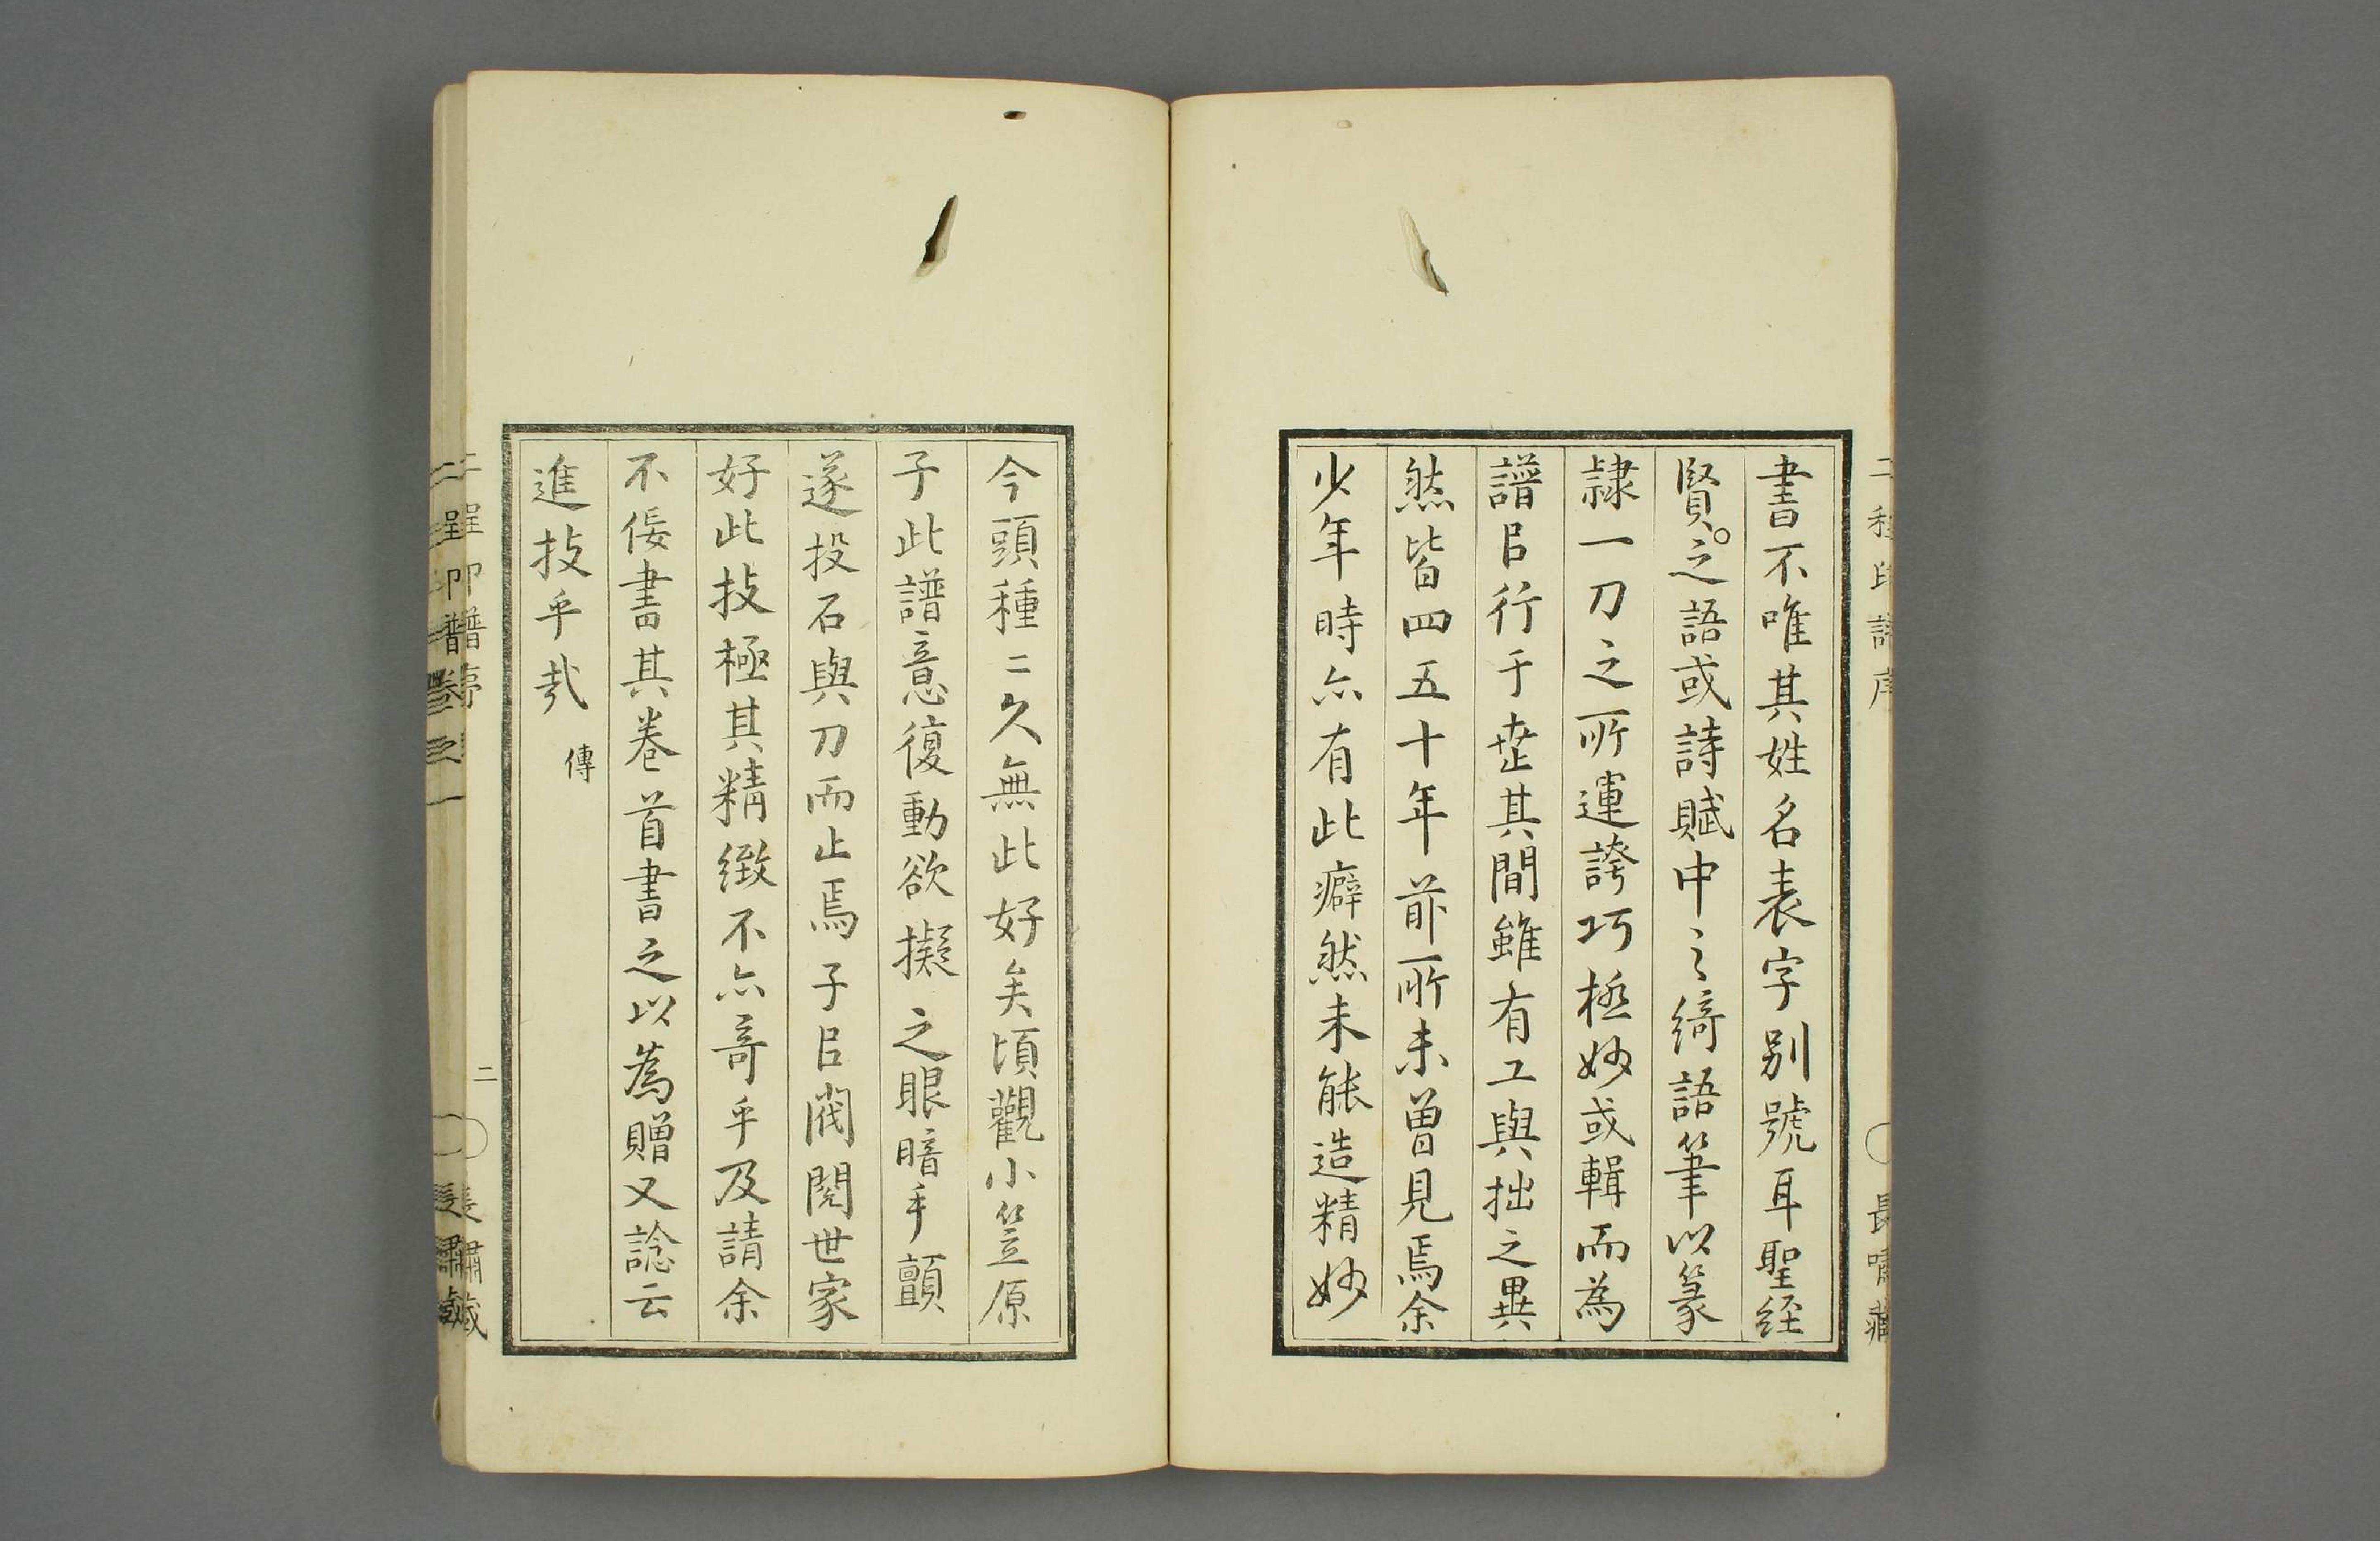 二程印譜序
長嘯藏
書不唯其姓名表字別號耳聖経
賢。之語或詩賦中之綺語筆以篆
隷一刀之所運誇巧極妙或輯而為
譜㠯行于世其間雖有工與拙之異
然皆四五十年前所未曽見焉余
少年時亦有此癖然未能造精妙
今頭種〻久無此好矣頃觀小笠原
子此譜意復動欲擬之眼暗手顫
遂投石與刀而止焉子㠯閥閱世家
好此技極其精緻不亦竒乎及請余
不佞書其卷首書之以為贈又諗云
進技乎哉
傳
二程印譜序
二
長嘯藏
二程印譜卷之一
長嘯藏